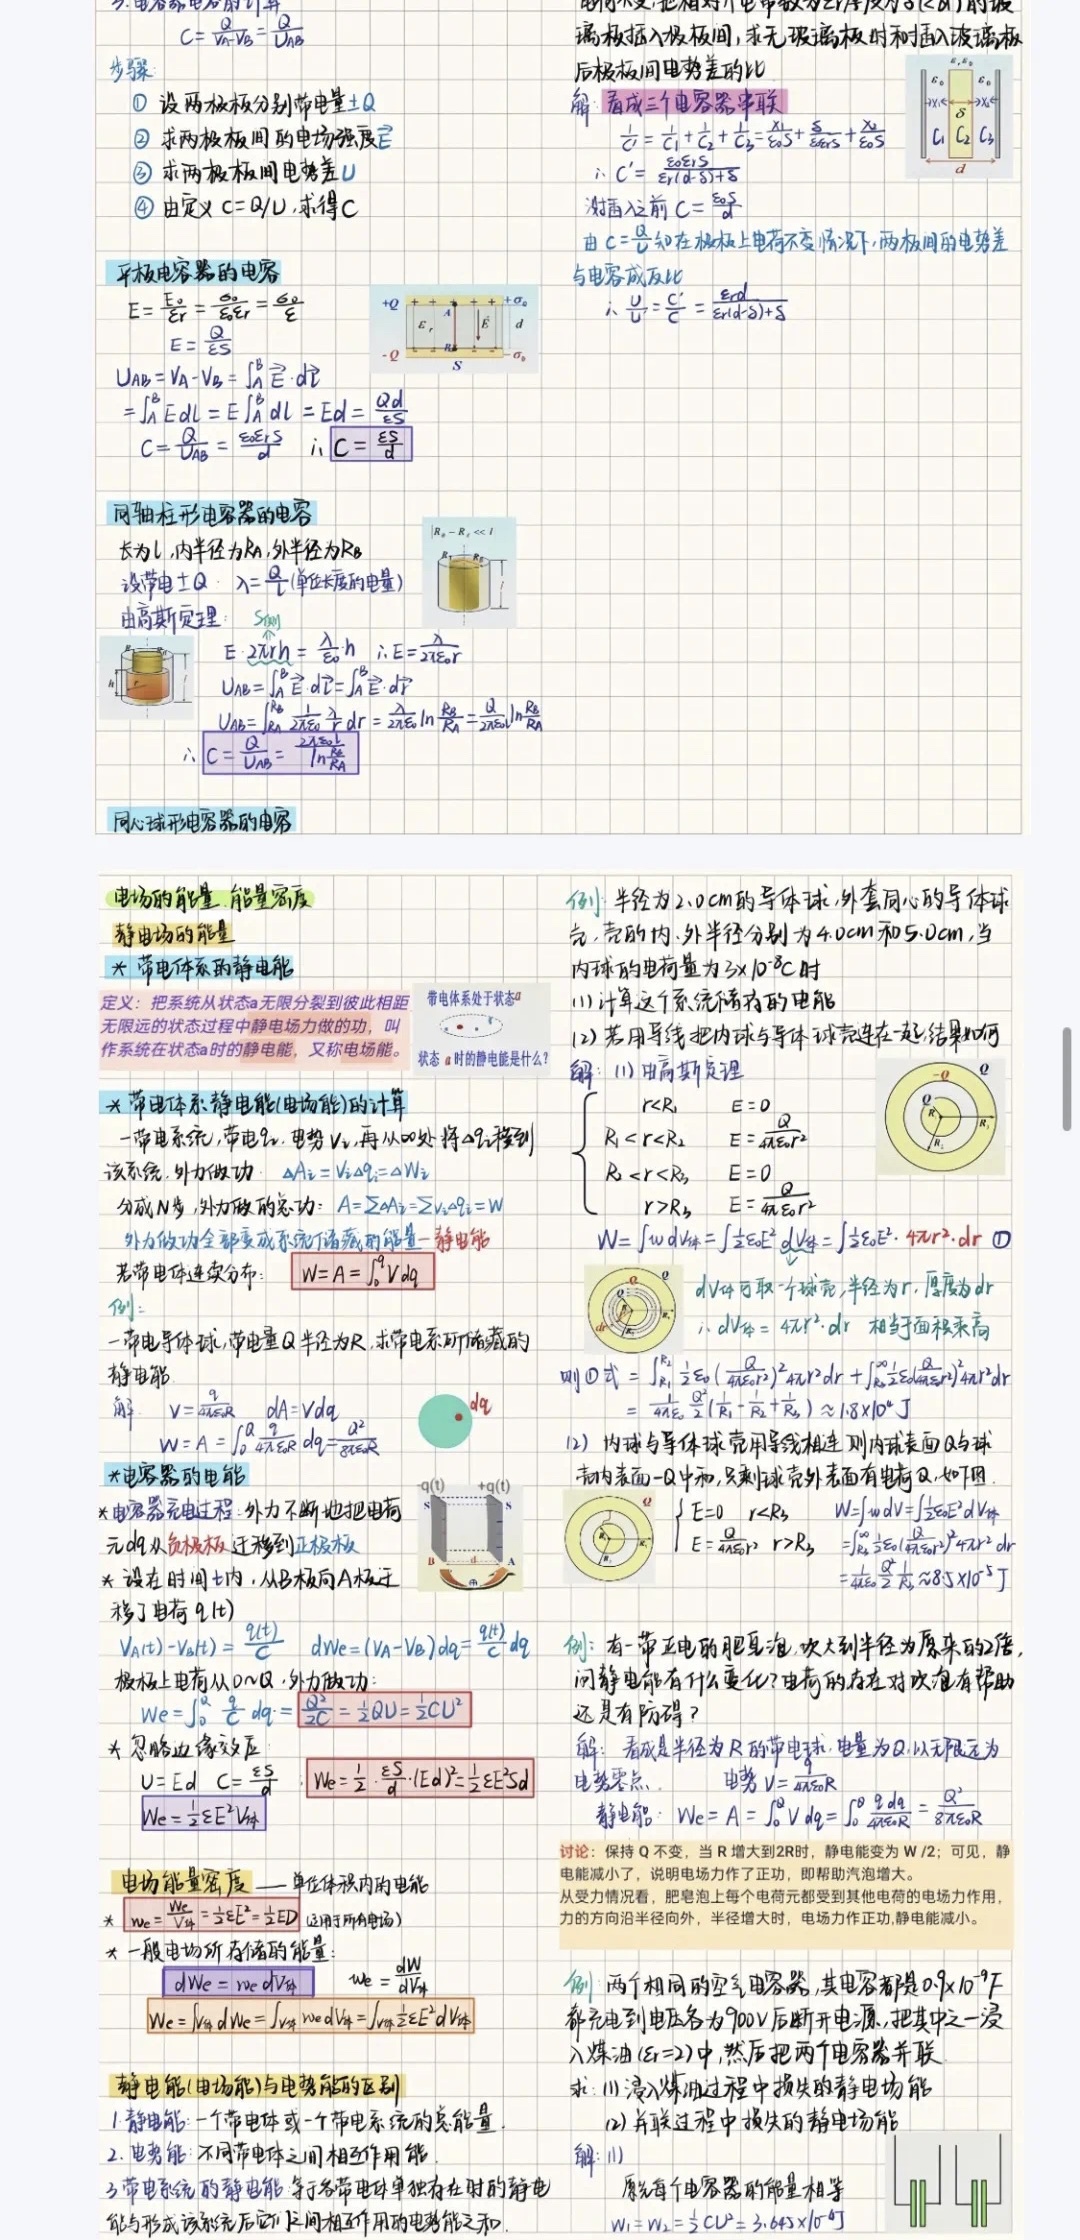 C=Q/(VA-VB)=Q/UAB
步骤:
① 设两极板分别带电量±Q
② 求两极板间的电场强度E⃗
③ 求两极板间电势差U
④ 由定义 C=Q/U,求得C
平板电容器的电容
E=E₀/εr=σ₀/ε₀εr=σ₀/ε
E=Q/εS
+Q + + + + + +σ₀
A
εr E⃗ d
B
-Q - - - - -σ₀
S
UAB=VA-VB=∫_A^B E⃗·dl⃗
=∫_A^B Edl=E∫_A^B dl=Ed=Qd/εS
C=Q/UAB=ε₀εrS/d ∴ C=εS/d
同轴柱形电容器的电容
长为l,内半径为RA,外半径为RB
设带电±Q λ=Q/l(单位长度的电量)
由高斯定理: S侧
E·2πrh=λ/ε₀·h ∴E=λ/2πε₀r
UAB=∫_A^B E⃗·dl⃗=∫_A^B E⃗·dr⃗
UAB=∫_RA^RB 1/2πε₀ λ/r dr=λ/2πε₀ ln RB/RA=Q/2πε₀l ln RB/RA
∴ C=Q/UAB=2πε₀l/ln RB/RA
同心球形电容器的电容
璃板插入极板间,求无玻璃板时和插入玻璃板
后极板间电势差的比
解:看成三个电容器串联
1/C'=1/C₁+1/C₂+1/C₃=X₁/ε₀S+δ/ε₀εrS+X₂/ε₀S
∴ C'=ε₀εrS/(εr(d-δ)+δ)
没插入之前 C=ε₀S/d
由C=Q/U知在极板上电荷不变情况下,两极板间的电势差
与电容成反比
∴ U/U'=C'/C=εrd/(εr(d-δ)+δ)
ε₀ ε₀
X₁ δ X₂
C₁ C₂ C₃
d
电场的能量.能量密度
静电场的能量
* 带电体系的静电能
定义:把系统从状态a无限分裂到彼此相距
无限远的状态过程中静电场力做的功,叫
作系统在状态a时的静电能,又称电场能。
带电体系处于状态a
状态 a 时的静电能是什么?
* 带电体系静电能(电场能)的计算
一带电系统,带电qi,电势Vi,再从∞处将Δqi移到
该系统,外力做功: ΔAi=ViΔqi=ΔWi
分成N步,外力做的总功: A=ΣΔAi=ΣViΔqi=W
外力做功全部变成系统储藏的能量—静电能
若带电体连续分布: W=A=∫₀^q Vdq
例:
一带电导体球,带电量Q半径为R,求带电系所储藏的
静电能
解 V=q/4πε₀R dA=Vdq
W=A=∫₀^Q q/4πε₀R dq=Q²/8πε₀R
dq
*电容器的电能
*电容器充电过程:外力不断地把电荷
元dq从负极板迁移到正极板
* 设在时间t内,从B板向A板迁
移了电荷q(t)
-q(t) +q(t)
S S
B d A
VA(t)-VB(t)=q(t)/C dWe=(VA-VB)dq=q(t)/C dq
极板上电荷从0~Q,外力做功:
We=∫₀^Q q/C dq=Q²/2C=½QU=½CU²
* 忽略边缘效应
U=Ed C=εS/d : We=½·εS/d·(Ed)²=½εE²Sd
We=½εE²V体
电场能量密度 —— 单位体积内的电能
* we=We/V体=½εE²=½ED (适用于所有电场)
* 一般电场所存储的能量:
dWe=we dV体 we=dW/dV体
We=∫V体 dWe=∫V体 we dV体=∫V体 ½εE²dV体
静电能(电场能)与电势能的区别
1.静电能:一个带电体或一个带电系统的总能量.
2.电势能:不同带电体之间相互作用能.
3.带电系统的静电能:等于各带电体单独存在时的静电
能与形成该系统后它们之间相互作用的电势能之和.
例:半径为2.0cm的导体球,外套同心的导体球
壳,壳的内、外半径分别为4.0cm和5.0cm,当
内球的电荷量为3×10⁻⁸C时
(1)计算这个系统储存的电能
(2)若用导线把内球与导体球壳连在一起,结果如何
解:(1)由高斯定理
r<R₁ E=0
R₁<r<R₂ E=Q/4πε₀r²
R₂<r<R₃ E=0
r>R₃ E=Q/4πε₀r²
W=∫wdV体=∫½ε₀E²dV体=∫½ε₀E²·4πr²·dr ①
dV体可取一个球壳,半径为r,厚度为dr
∴ dV体=4πr²·dr 相当于面积乘高
则①式=∫_R₁^R₂ ½ε₀(Q/4πε₀r²)²4πr²dr+∫_R₃^∞ ½ε₀(Q/4πε₀r²)²4πr²dr
=1/4πε₀ Q²/2(1/R₁-1/R₂+1/R₃)≈1.8×10⁻⁴J
(2) 内球与导体球壳用导线相连,则内球表面Q与球
壳内表面-Q中和,只剩球壳外表面有电荷Q,如下图.
E=0 r<R₃ W=∫wdV=∫½ε₀E²dV体
E=Q/4πε₀r² r>R₃ =∫_R₃^∞ ½ε₀(Q/4πε₀r²)²4πr²dr
=1/4πε₀ Q²/2 1/R₃≈8.5×10⁻⁵J
例:有一带正电的肥皂泡,吹大到半径为原来的2倍,
问静电能有什么变化?电荷的存在对吹泡有帮助
还是有防碍?
解:看成是半径为R的带电球,电量为Q,以无限远为
电势零点. 电势V=q/4πε₀R
静电能:We=A=∫₀^Q Vdq=∫₀^Q qdq/4πε₀R=Q²/8πε₀R
讨论:保持 Q 不变,当 R 增大到2R时,静电能变为 W /2;可见,静
电能减小了,说明电场力作了正功,即帮助汽泡增大。
从受力情况看,肥皂泡上每个电荷元都受到其他电荷的电场力作用,
力的方向沿半径向外,半径增大时,电场力作正功,静电能减小。
例:两个相同的空气电容器,其电容都是0.9×10⁻⁹F
都充电到电压各为900V后断开电源,把其中之一浸
入煤油(εr=2)中,然后把两个电容器并联
求:(1)浸入煤油过程中损失的静电场能
(2)并联过程中损失的静电场能
解:(1)
原先每个电容器的能量相等
W₁=W₂=½CU²=3.645×10⁻⁴J